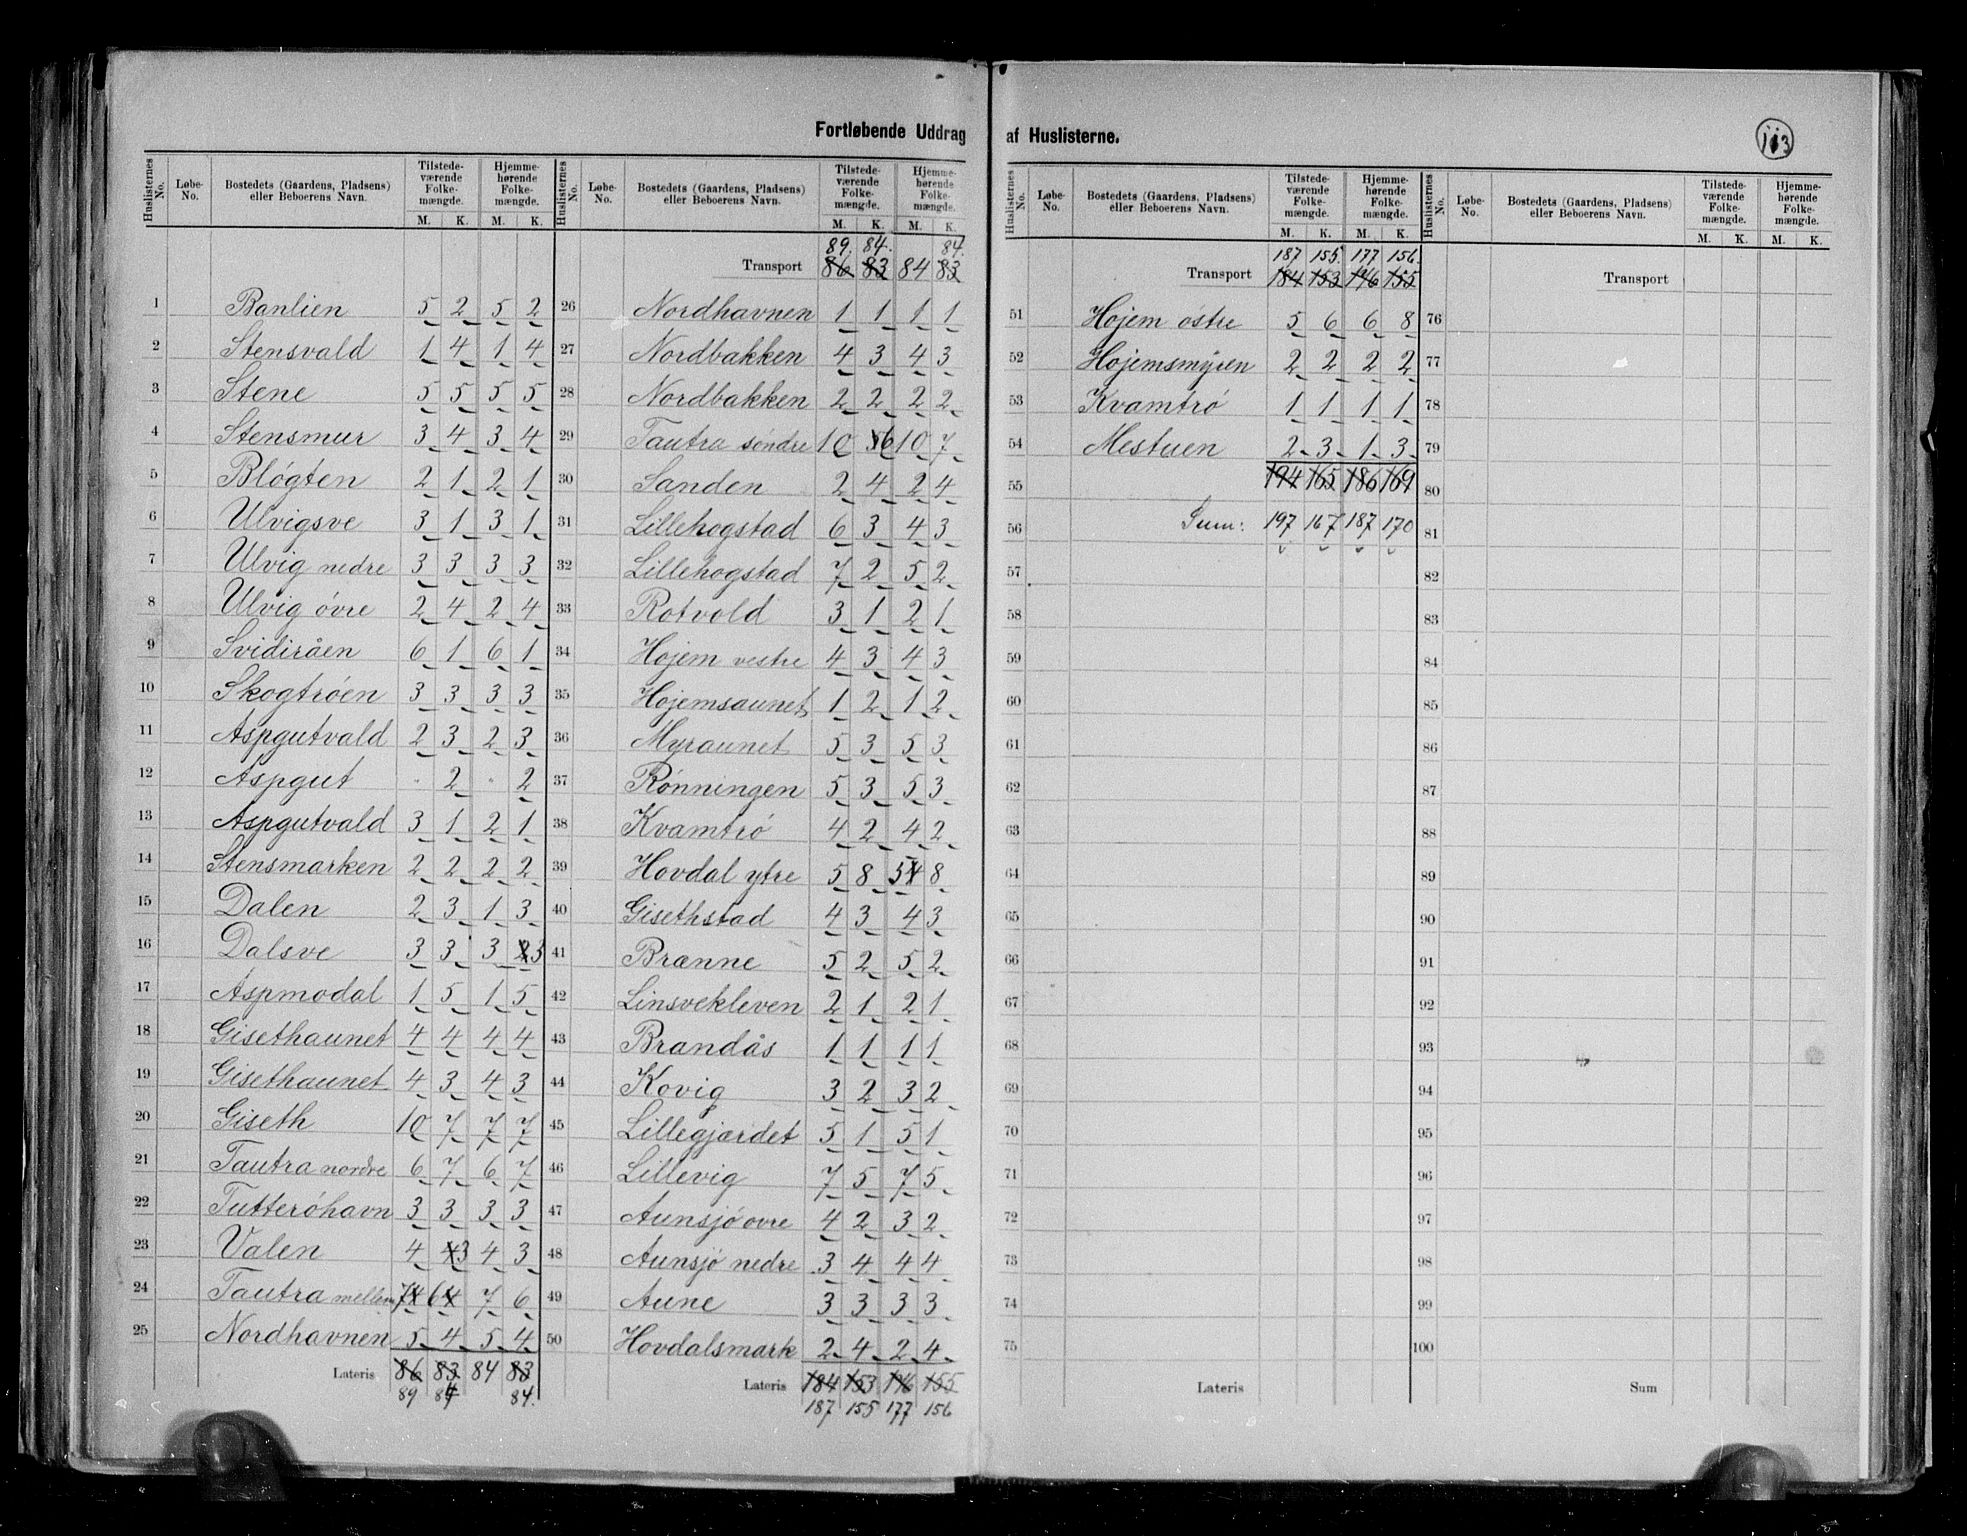 Fortløbende Uddrag af Huslisterne.
113
Huslisternes No. Løbe-No. Bostedets (Gaardens, Pladsens) eller Beboerens Navn. Tilstedeværende Folkemængde. M. K. Hjemmehørende Folkemængde. M. K.
1 Banlien 5 2 5 2
2 Stensvald 1 4 1 4
3 Stene 5 5 5 5
4 Stensmur 3 4 3 4
5 Bløgten 2 1 2 1
6 Ulvigsve 3 1 3 1
7 Ulvig nedre 3 3 3 3
8 Ulvig øvre 2 4 2 4
9 Svidiråen 6 1 6 1
10 Skogtrøen 3 3 3 3
11 Aspgutvald 2 3 2 3
12 Aspgut " 2 " 2
13 Aspgutvald 3 1 2 1
14 Stensmarken 2 2 2 2
15 Dalen 2 3 1 3
16 Dalsve 3 3 3 2 3
17 Aspmodal 1 5 1 5
18 Gisethaunet 4 4 4 4
19 Gisethaunet 4 3 4 3
20 Giseth 10 7 7 7
21 Tautra nordre 6 7 6 7
22 Tutterøhavn 3 3 3 3
23 Valen 4 4 3 4 3
24 Tautra mellem 7 4 6 4 7 6
25 Nordhavnen 5 4 5 4
Lateris 86 83 84 83
89 84 84.
Huslisternes No. Løbe-No. Bostedets (Gaardens, Pladsens) eller Beboerens Navn. Tilstedeværende Folkemængde. M. K. Hjemmehørende Folkemængde. M. K.
89. 84. 84.
Transport 86 83 84 83
26 Nordhavnen 1 1 1 1
27 Nordbakken 4 3 4 3
28 Nordbakken 2 2 2 2
29 Tautra søndre 10 5 6 10 7
30 Sanden 2 4 2 4
31 Lillehogstad 6 3 4 3
32 Lillehogstad 7 2 5 2
33 Rotvold 3 1 2 1
34 Højem vestre 4 3 4 3
35 Højemsaunet 1 2 1 2
36 Myraunet 5 3 5 3
37 Rønningen 5 3 5 3
38 Kvamtrø 4 2 4 2
39 Hovdal ytre 5 8 5 4 8
40 Gisethstad 4 3 4 3
41 Brænne 5 2 5 2
42 Linsvekleven 2 1 2 1
43 Brandås 1 1 1 1
44 Kovig 3 2 3 2
45 Lillegjærdet 5 1 5 1
46 Lillevig 7 5 7 5
47 Aunsjø øvre 4 2 3 2
48 Aunsjø nedre 3 4 4 4
49 Aune 3 3 3 3
50 Hovdalsmark 2 4 2 4
Lateris 184 153 176 155
187 155 177 156
Huslisternes No. Løbe-No. Bostedets (Gaardens, Pladsens) eller Beboerens Navn. Tilstedeværende Folkemængde. M. K. Hjemmehørende Folkemængde. M. K.
187 155. 177 156.
Transport 184 153 176 155
51 Højem østre 5 6 6 8
52 Højemsmyren 2 2 2 2
53 Kvamtrø 1 1 1 1
54 Mestuen 2 3 1 3
55 194 165 186 169
56 Sum: 197 167 187 170
57
58
59
60
61
62
63
64
65
66
67
68
69
70
71
72
73
74
75
Lateris
Huslisternes No. Løbe-No. Bostedets (Gaardens, Pladsens) eller Beboerens Navn. Tilstedeværende Folkemængde. M. K. Hjemmehørende Folkemængde. M. K.
Transport
76
77
78
79
80
81
82
83
84
85
86
87
88
89
90
91
92
93
94
95
96
97
98
99
100
Sum